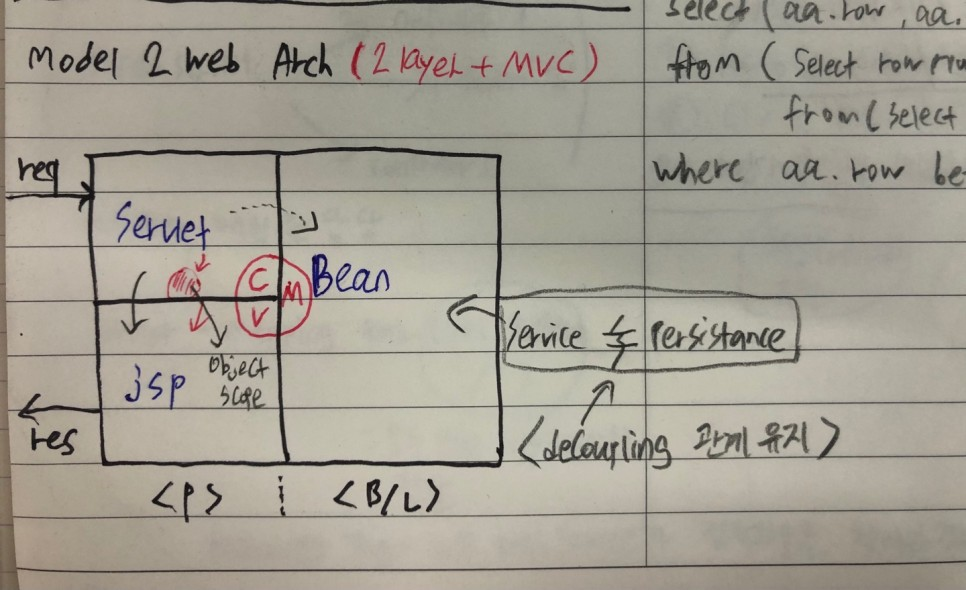 Model 2 web Arch (2 layer + MVC)
req
Servlet
C
M
V
Bean
jsp
Object
Scope
res
Service ↔ Persistance
<decoupling 관계 유지>
<P>
<B/L>
select (aa.row, aa.
from ( Select row nu
from ( Select
where aa.row be